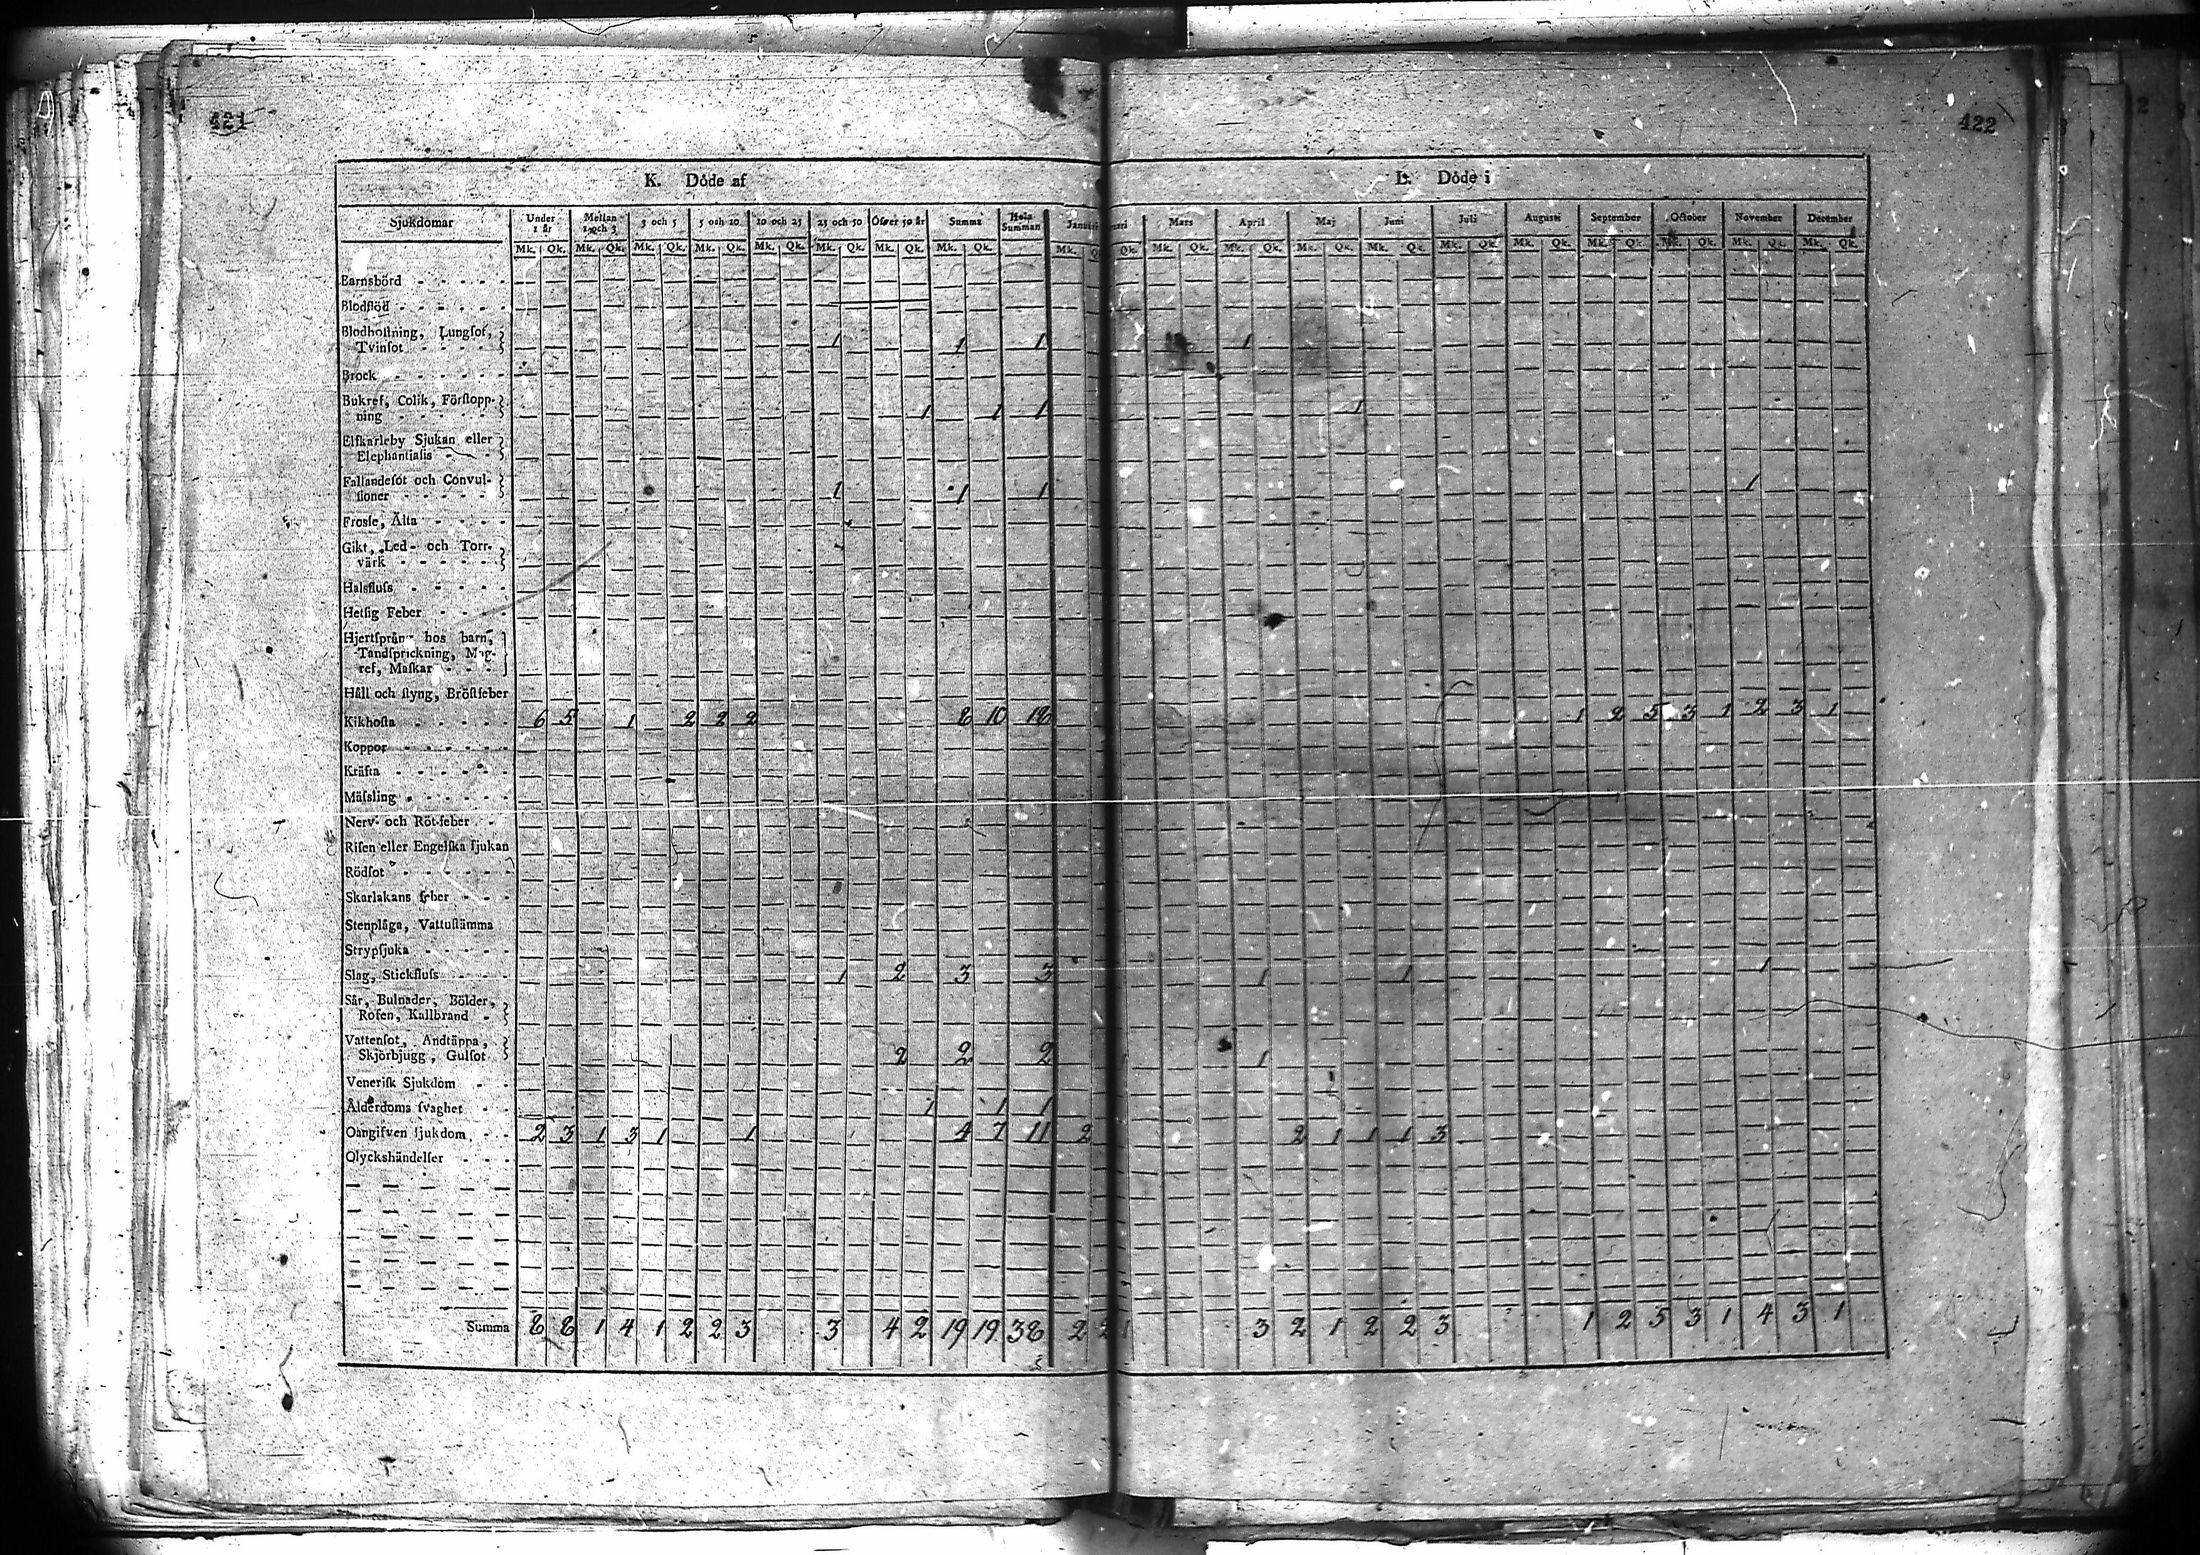 421
422
K. Döde af
L. Döde i
Sjukdomar Under 1 år Mellan 1 och 3 3 och 5 5 och 10 10 och 25 25 och 50 Öfver 50 år Summa Hela Summan Januari Mars April Maj Juni Juli Augusti September October November December
Mk. Qk. Mk. Qk. Mk. Qk. Mk. Qk. Mk. Qk. Mk. Qk. Mk. Qk. Mk. Qk. Mk. Qk. Mk. Qk. Mk. Qk. Mk. Qk. Mk. Qk. Mk. Qk. Mk. Qk. Mk. Qk. Mk. Qk. Mk. Qk. Mk. Qk.
Barnsbörd
Blodflöd
Blodhostning, Lungsot,
Tvinsot 1 1 1 1
Brock
Bukref, Colik, Förstopp-
ning 1 1 1 1
Elfkarleby Sjukan eller
Elephantiasis
Fallandesot och Convul-
sioner 1 1 1 1
Frossa, Älta
Gikt, Led- och Torr-
värk
Halsfluss
Hetsig Feber
Hjertsprång hos barn,
Tandsprickning, Mag-
ref, Maskar
Håll och styng, Bröstfeber
Kikhosta 6 5 1 2 2 2 8 10 18 1 2 5 3 1 2 3 1
Koppor
Kräfta
Mässling
Nerv- och Röt-feber
Risen eller Engelska sjukan
Rödsot
Skarlakans feber
Stenplåga, Vattustämma
Strypsjuka
Slag, Stickfluss 1 2 3 3 1 1 1
Sår, Bulnader, Bölder,
Rosen, Kallbrand
Vattensot, Andtäppa,
Skjörbjugg, Gulsot 2 2 2 1
Venerisk Sjukdom
Ålderdoms svaghet 1 1 1
Oangifven sjukdom 2 3 1 3 1 1 4 7 11 2 2 1 1 1 3
Olyckshändelser
Summa 8 8 1 4 1 2 2 3 3 4 2 19 19 38 2 2 1 3 2 1 2 2 3 1 2 5 3 1 4 3 1